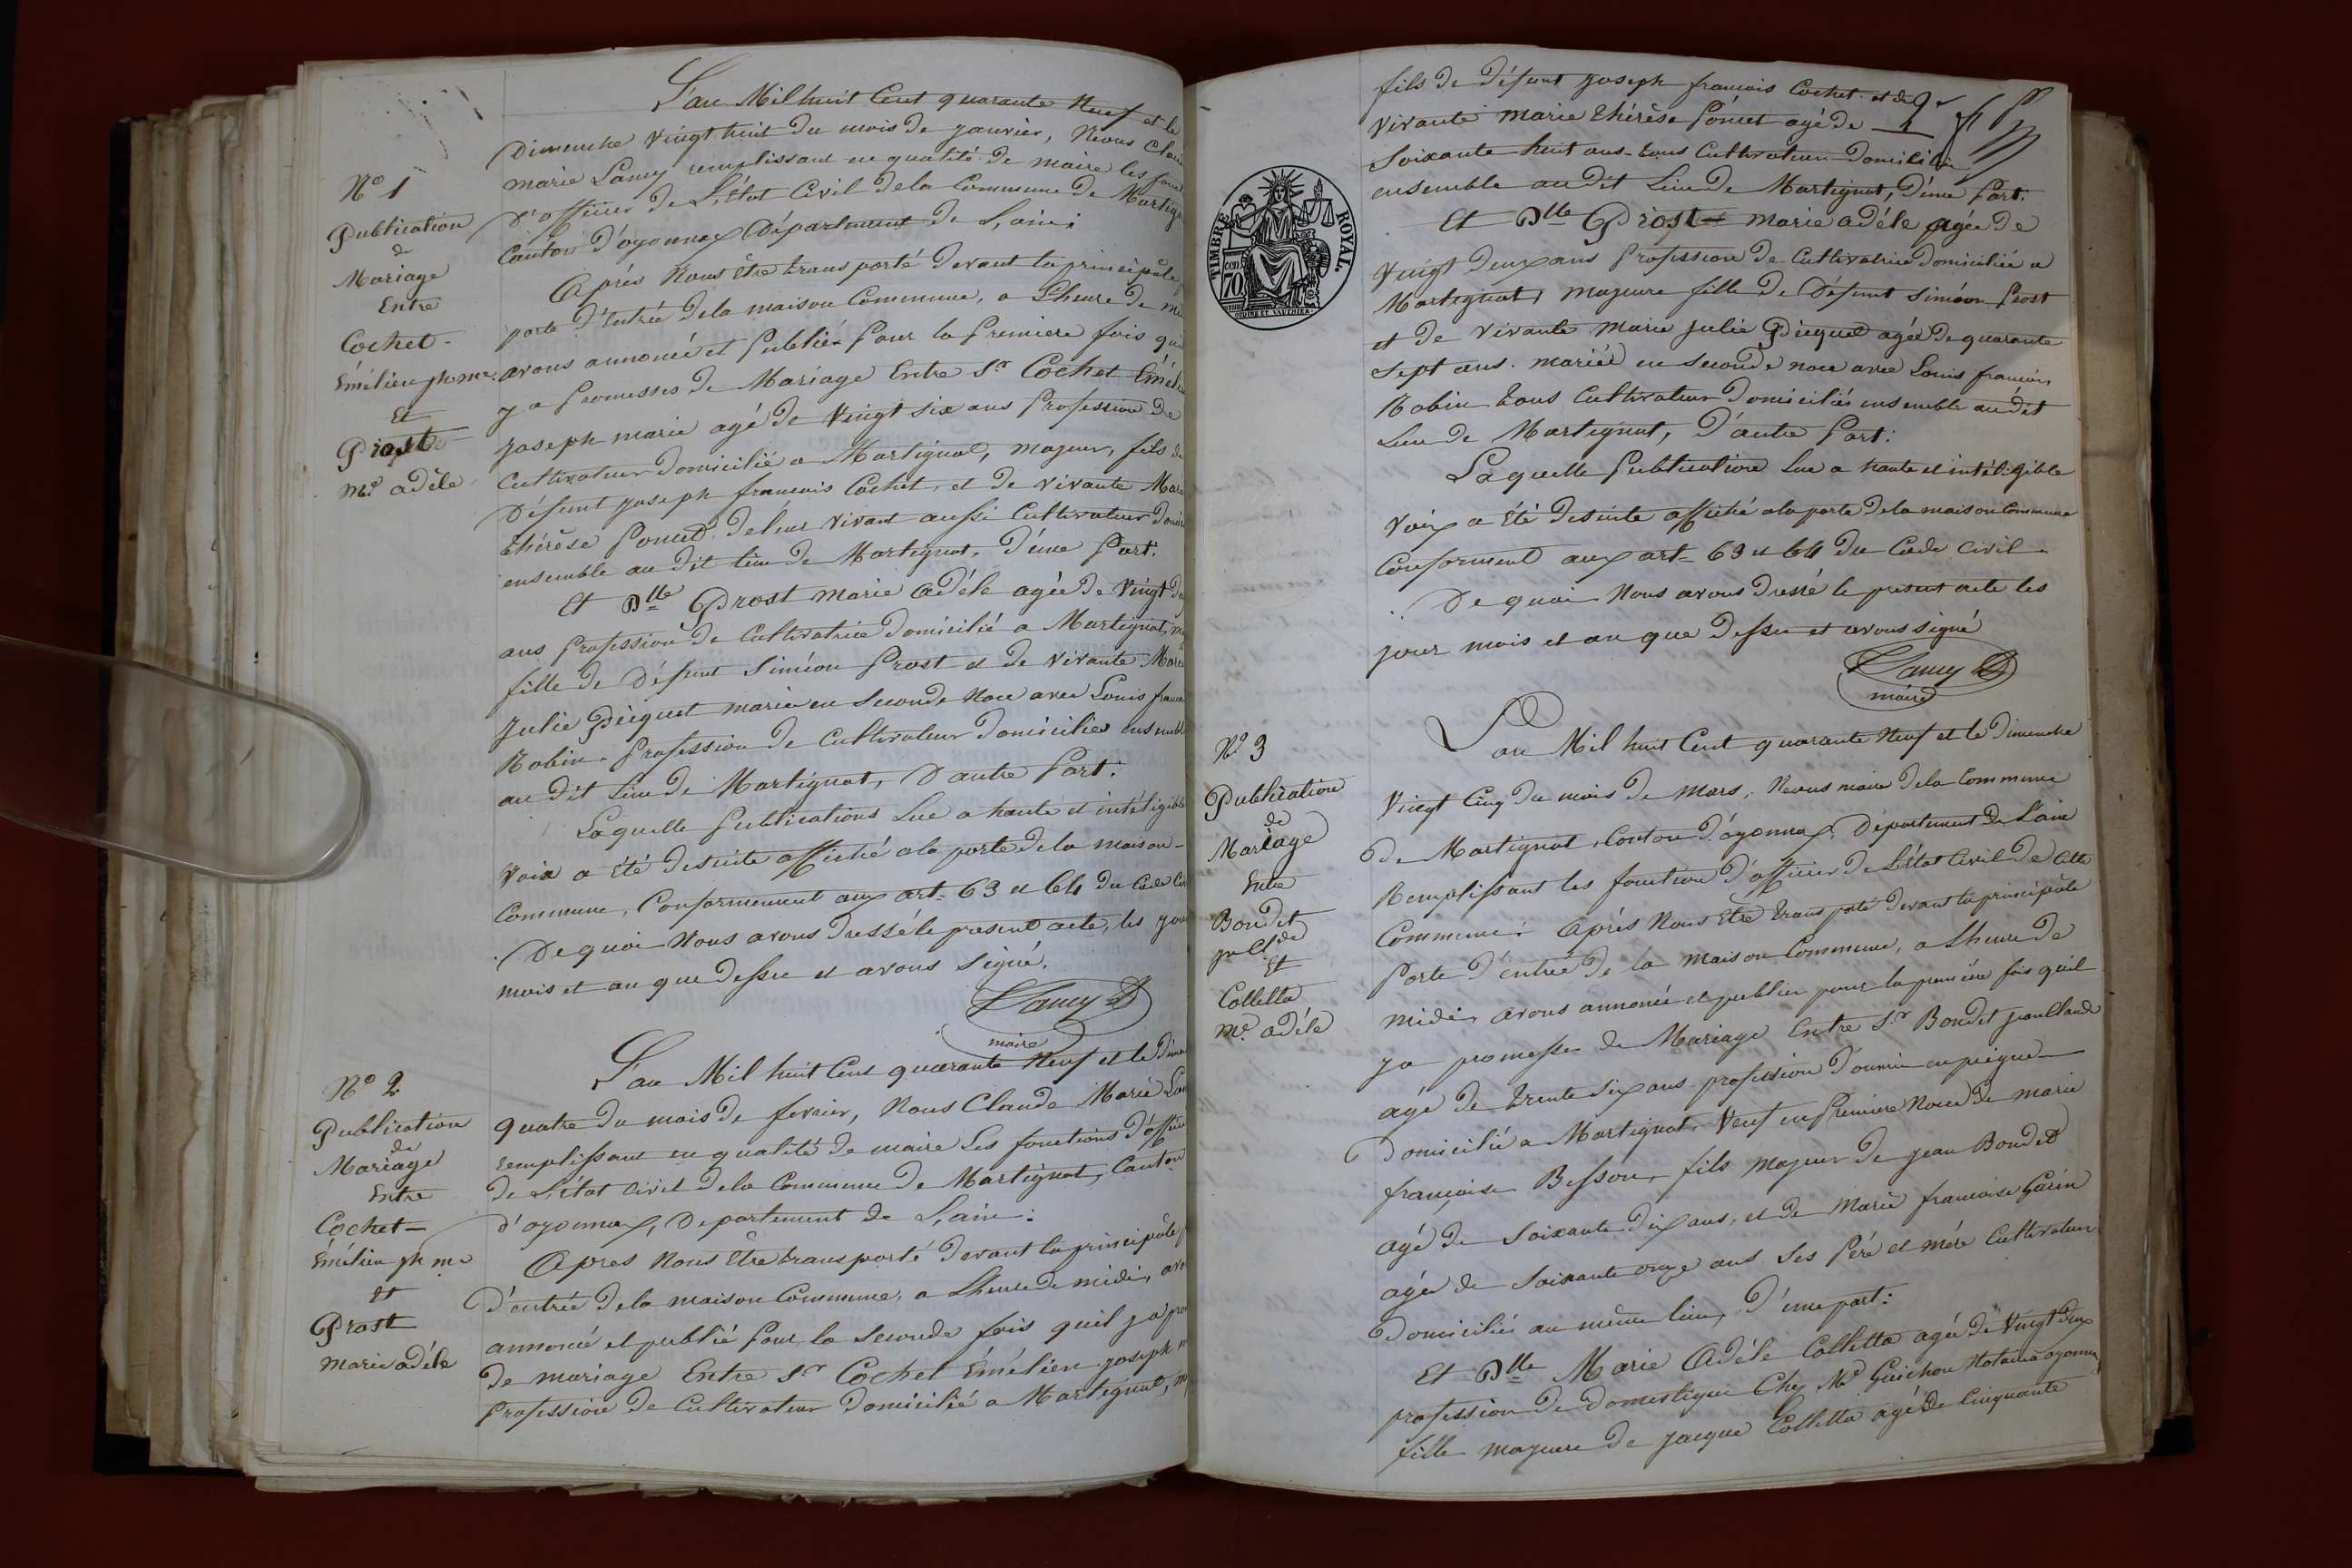 N° 1
Publication
de
Mariage
Entre
Cochet
Émélien ph me.
Et
Prost
me. adèle
L'an Mil huit Cent quarante Neuf et le
Dimenche Vingt huit du mois de janvier, Nous Clau
marie Lamy remplissant en qualité de maire les fonc
d'officier de L'état Civil de la Commune de Martig
Canton d'oyonnax Département de L'ain:
Après Nous être transporté devant la principâle
porte d'Entrée de la maison Commune, a L'heure de mi
avons annoncé et Publié Pour la Premiere fois qui
y a Promesses de Mariage Entre Sr Cochet Émélie
joseph marie agé de Vingt six ans Profession de
Cultivateur domicilié a Martignat, majeur, fils de
Défunt joseph francois Cochet, et de vivante Mari
thérèse Poncet de leur vivant aussi Cultivateur domi
ensemble au dit lieu de Martignat, d'une Part.
Et Dlle Prost marie adèle agée de Vingt de
ans Profession de Cultivatrice domicilié a Martignat, m
fille de Défunt Siméon Prost et de vivante Mari
Julie Picquet marié en Seconde Noce avec Louis franc
Robin. Profession de Cultivateur domiciliés ensemble
au dit Lieu de Martignat, D'autre Part:
Laquelle Publications Lue a haute et intéligible
Voix a été desuite affiché a la porte de la maison
Commune, Conformement aux art. 63 et 64 du Code Civ
De quoi Nous avons dressé le present acte, les jou
mois et an que dessu et avons signé.
Lamy
maire
N° 2
Publication
de
Mariage
Entre
Cochet
Émélien ph me
et
Prost
Marie adèle
L'an Mil huit Cent quarante Neuf et le Dime
quatre du mois de fevrier, Nous Claude Marie Lam
remplissant en qualité de maire Les fonctions d'offici
de L'état civil de la Commune de Martignat, Canton
d'oyonnax, Departement de L'ain:
Apres Nous être transporté devant la principâle p
D'entrée de la maison Commune, a L'heure de midi, avo
annoncé et publié Pour la Seconde fois qu'il y a pro
de mariage Entre Sr Cochet Émélien joseph m
Profession de Cultivateur domicilié a Martignat, m
2e
fils de Défunt joseph francois Cochet et de
vivante marie thérèse Poncet agé de
Soixante huit ans tous Cultivateur domicilié
ensemble au dit Lieu de Martignat, d'une Part.
TIMBRE ROYAL.
70
Et Dlle Prost marie adèle agée de
Vingt deux ans Profession de Cultivatrice domiciliée a
Martignat, majeure fille de Défunt Siméon Prost
et de vivante Marie Julie Picquet agée de quarante
Sept ans. mariée en Seconde noce avec Louis francois
Robin tous Cultivateur domiciliés ensemble au dit
Lieu de Martignat, d'autre Part:
Laquelle Publication Lue a haute et intéligible
Voix a été desuite affiché a la porte de la maison Commune
Conforment aux art. 63 et 64 du Code Civil
De quoi Nous avons dressé le present acte les
jour mois et an que dessu et avons signé
Lamy
maire
N° 3
Publication
de
Mariage
Entre
Bondet
jn Cl.de
Et
Colletta
me. adèle
L'an Mil huit Cent quarante Neuf et le Dimenche
Vingt Cinq du mois de Mars, Nous maire de la Commune
de Martignat, Canton d'oyonnax, Departement de L'ain
Remplissant les fonction d'officier de L'état Civil de Cette
Commune: Après Nous être transporté devant la principâle
Porte d'entrée de la Maison Commune, a L'heure de
midi, avons annoncé et publier pour la premiere fois qu'il
y a promesses de Mariage Entre Sr Bondet jean Claude
agé de trente six ans profession d'ouvrier en peigne
Domicilié a Martignat, Veuf en Premiere Noce de marie
françoise Besson, fils majeur de jean Bondet
agé de soixante dix ans, et de Marie francoise Garin
agée de soixante onze ans Ses Pére et mére Cultivateur
domiciliés au même lieu, d'une part:
Et Dlle Marie Adèle Colletta agée de Vingt deux
profession de domestique Chez Me Guichon Notaire a oyonnax
fille majeure de jacque Colletta agé de Cinquante